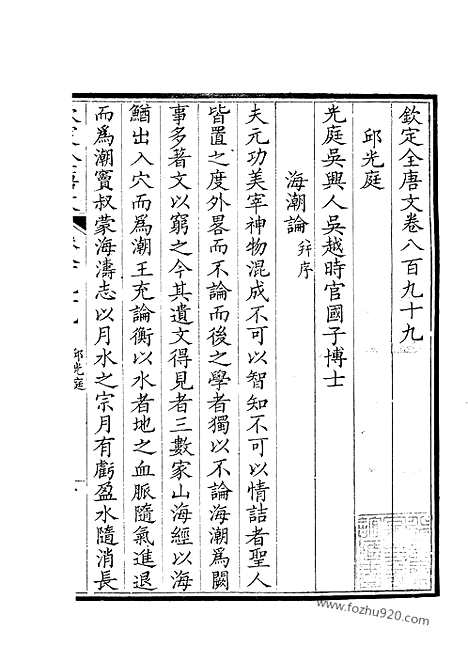 欽定全唐文卷八百九十九
邱光庭
光庭吳興人吳越時官國子博士
海潮論 幷序
夫元功美宰神物混成不可以智知不可以情詰者聖人
皆置之度外畧而不論而後之學者獨以不論海潮爲闕
事多著文以窮之今其遺文得見者三數家山海經以海
鰌出入穴而爲潮王充論衡以水者地之血脈隨氣進退
而爲潮竇叔蒙海濤志以月水之宗月有虧盈水隨消長
邱光庭
www.fozhu920.com